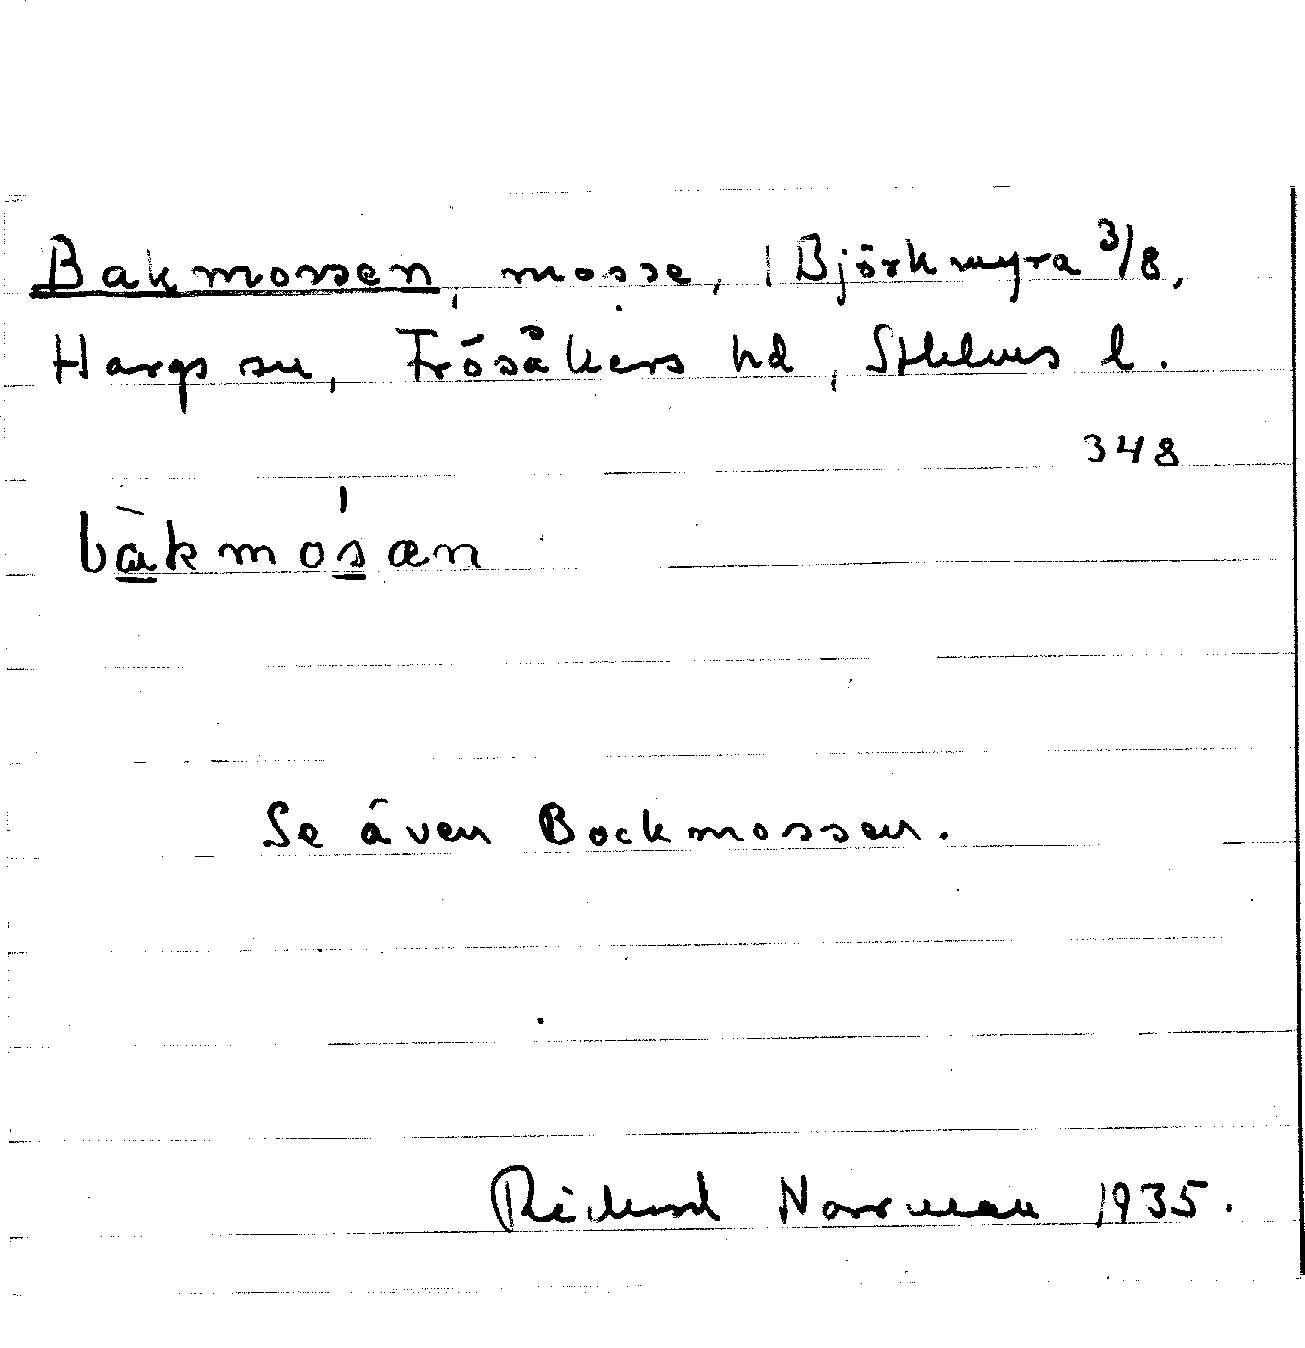 Bakmossen, mosse, | Björkmyra 3/8,
Hargs sn, Frösåkers hd, Sthlms l.
348
bàkmósan
Se även Bockmossen.
Rickard Norrman 1935.